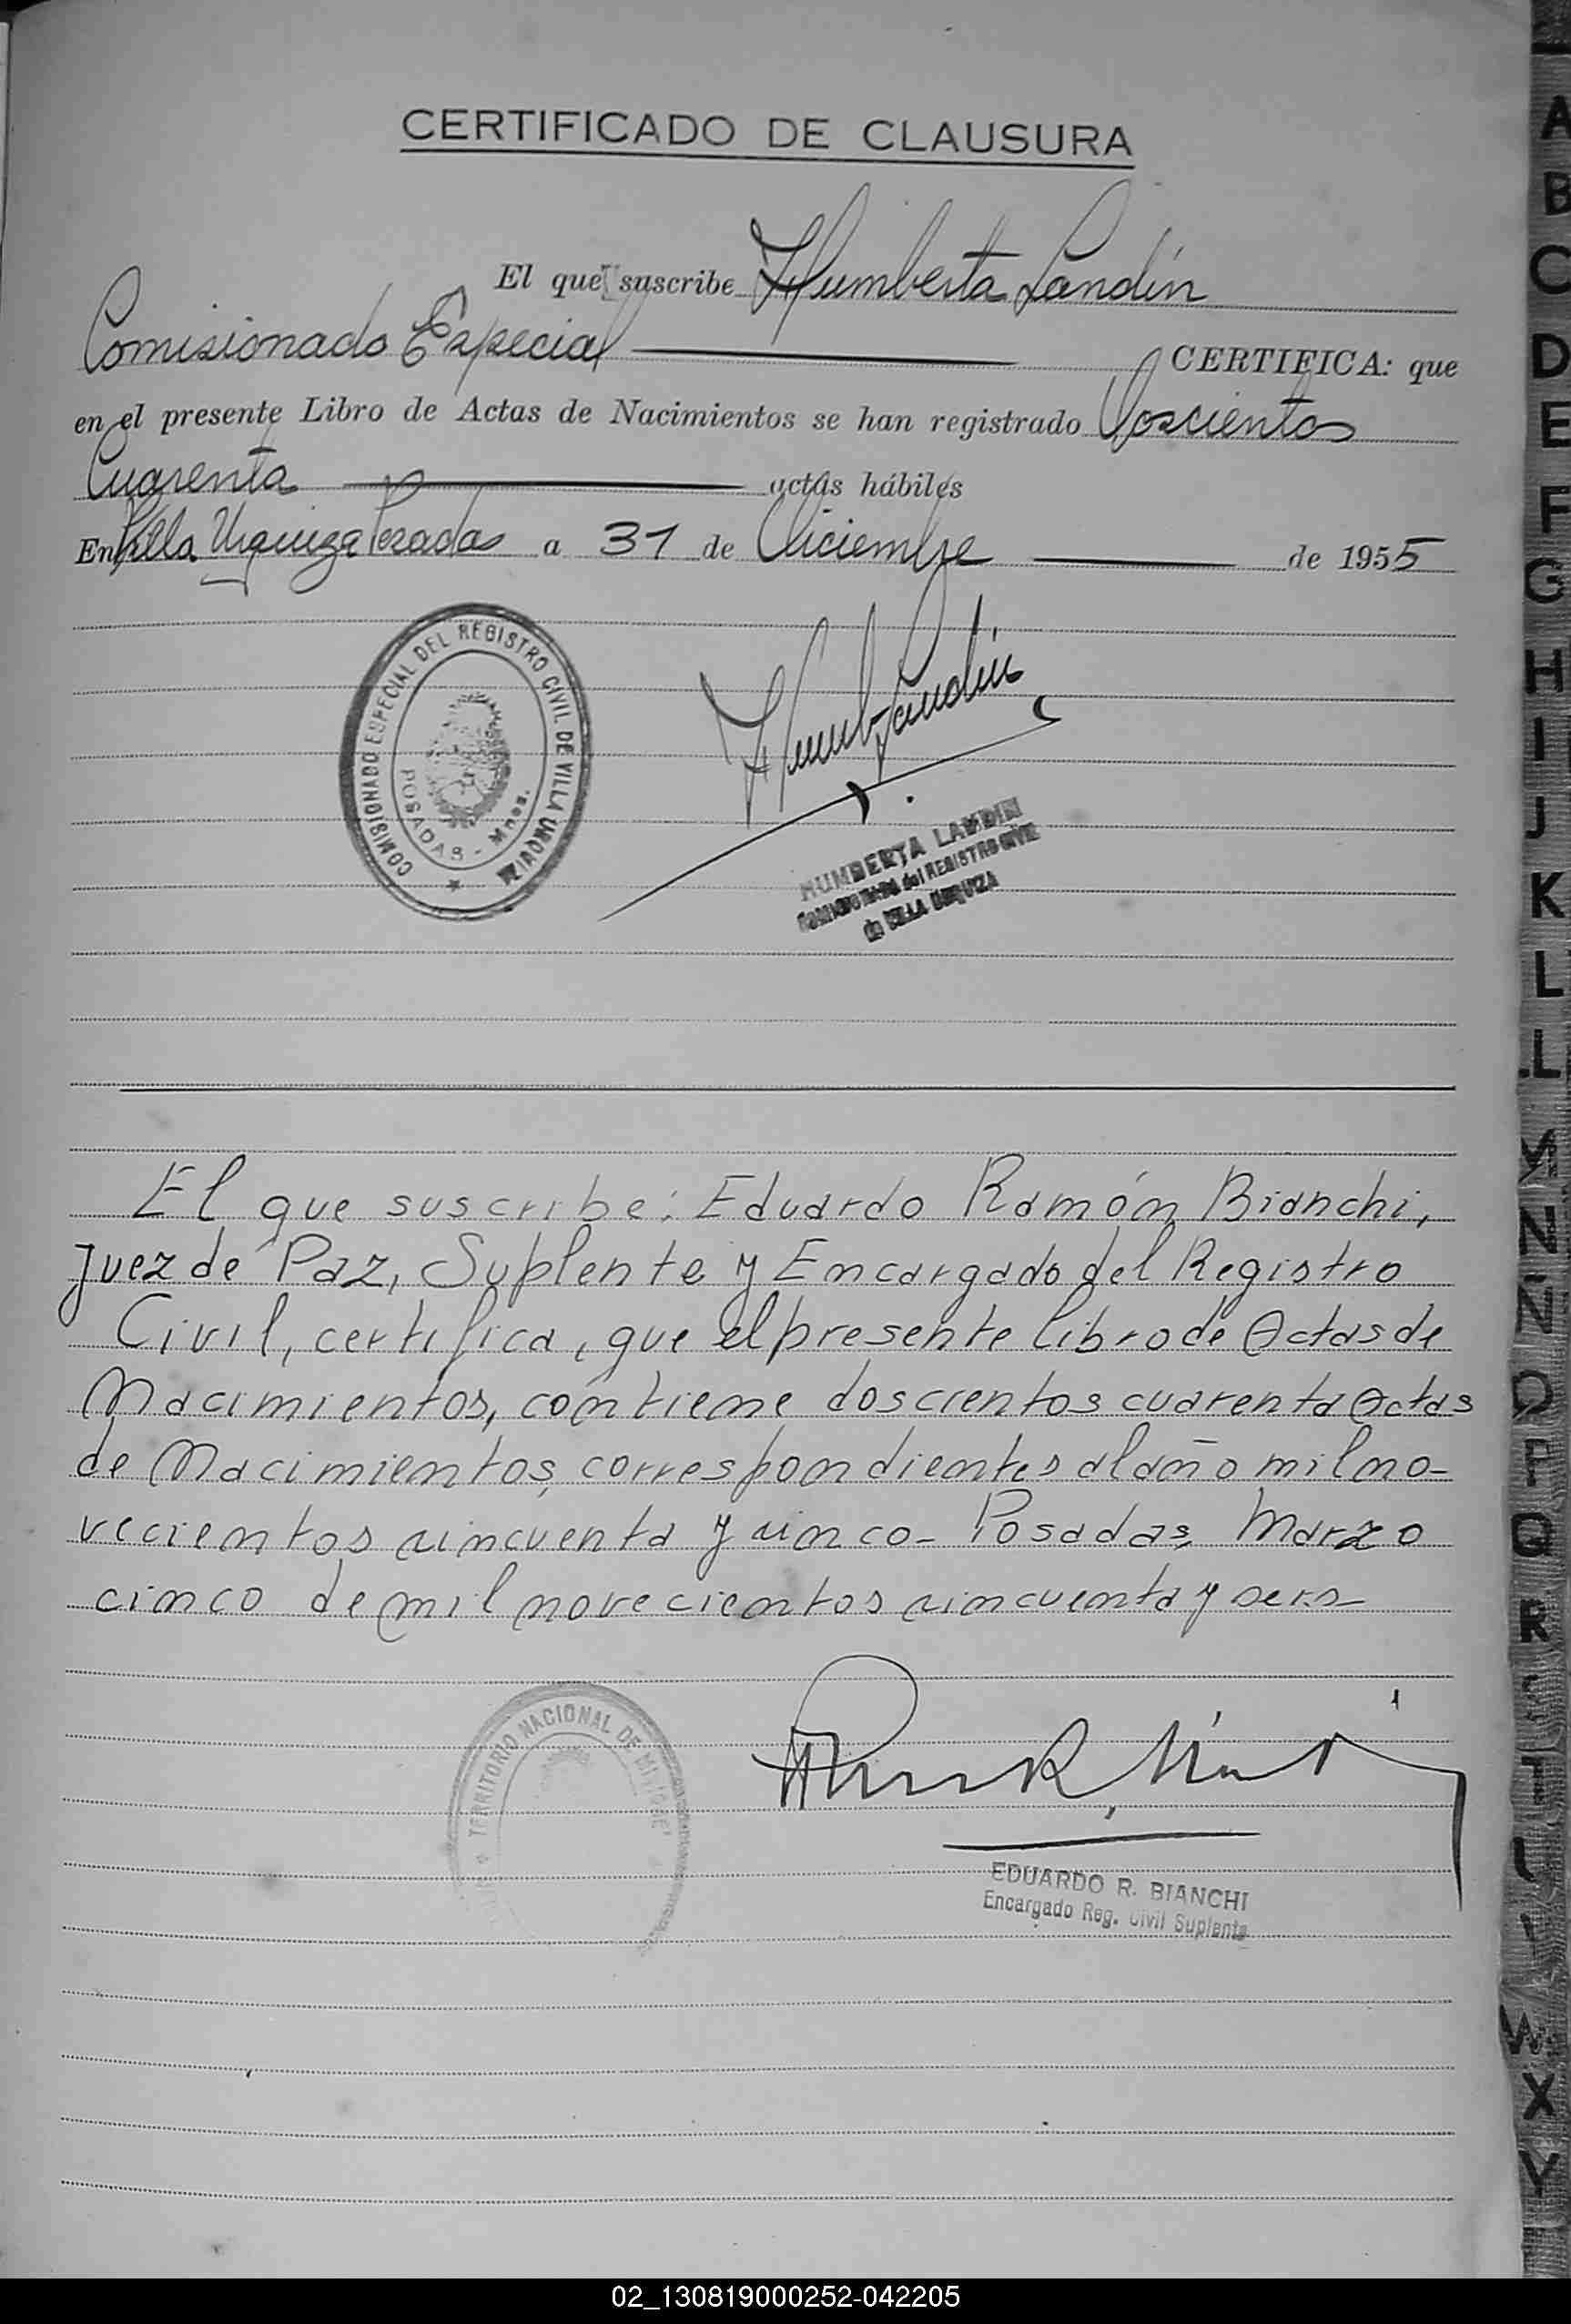 CERTIFICADO DE CLAUSURA
El que suscribe Humberta Landín
Comisionado Especial CERTIFICA: que
en el presente Libro de Actas de Nacimientos se han registrado Doscientos
Cuarenta actas hábiles
En Villa Urquiza Posadas a 31 de Diciembre de 1955
COMISIONADO ESPECIAL DEL REGISTRO CIVIL DE VILLA URQUIZA
POSADAS - Mnes.
Humb Landín
HUMBERTA LANDIN
COMISIONADO del REGISTRO CIVIL
de VILLA URQUIZA
El que suscribe: Eduardo Ramón Bianchi,
Juez de Paz, Suplente y Encargado del Registro
Civil, certifica, que el presente libro de Actas de
Nacimientos, contiene doscientos cuarenta Actas
de Nacimientos, correspondientes al año mil no-
vecientos cincuenta y cinco- Posadas, Marzo
cinco de mil novecientos cincuenta y seis-
TERRITORIO NACIONAL DE MISIONES
EDUARDO R. BIANCHI
Encargado Reg. Civil Suplente
A
B
C
D
E
F
G
H
I
J
K
L
LL
M
N
Ñ
O
P
Q
R
W
X
Y
02_130819000252-042205